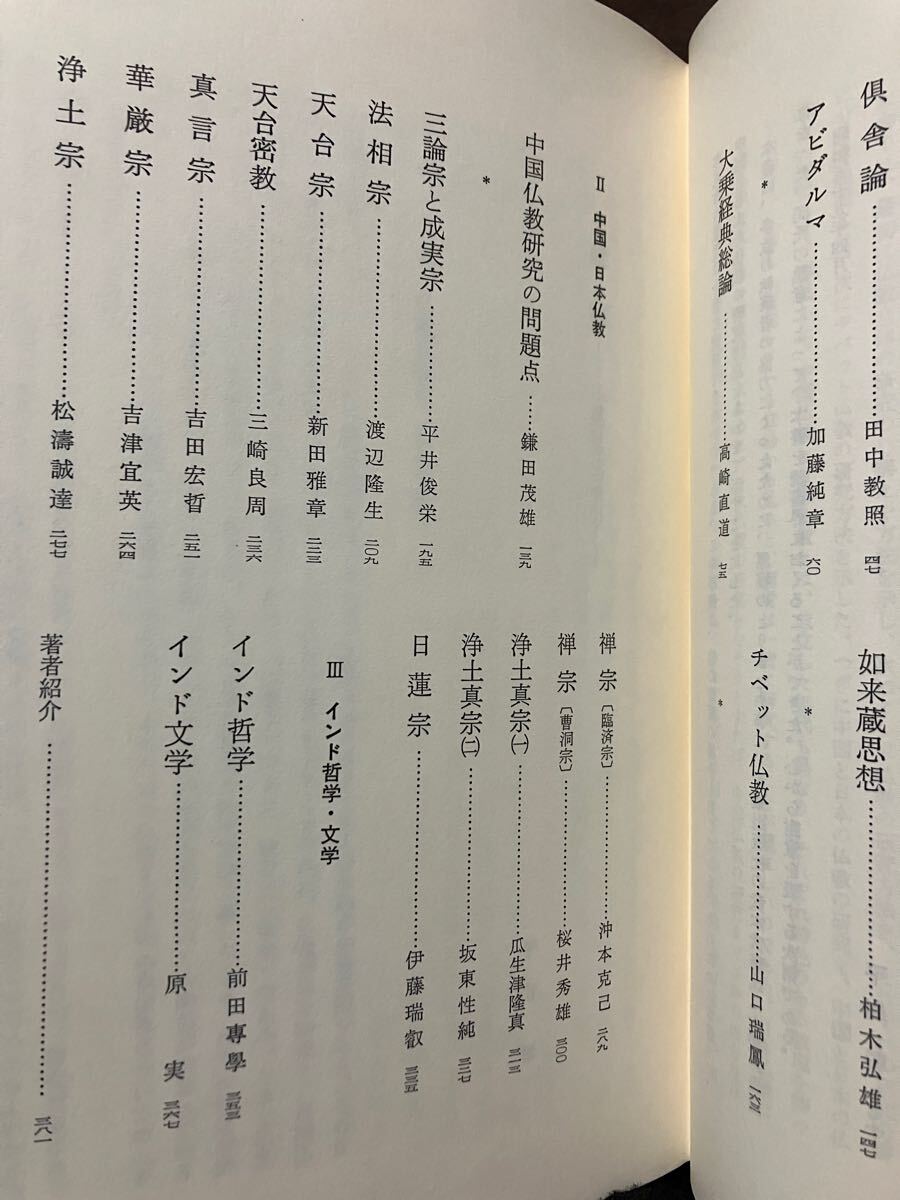 倶舎論……………田中教照 四七
アビダルマ……………加藤純章 六〇
*
大乗経典総論……………高崎直道 七五
如来蔵思想……………柏木弘雄 一四七
*
チベット仏教……………山口瑞鳳 一六三
*
Ⅱ 中国・日本仏教
中国仏教研究の問題点……鎌田茂雄 一七九
*
三論宗と成実宗……………平井俊栄 一九五
法相宗……………渡辺隆生 二〇九
天台宗……………新田雅章 二二三
天台密教……………三崎良周 二三六
真言宗……………吉田宏晢 二五一
華厳宗……………吉津宜英 二六四
浄土宗……………松濤誠達 二七七
禅宗〔臨済宗〕……………沖本克己 二八九
禅宗〔曹洞宗〕……………桜井秀雄 三〇〇
浄土真宗㈠……………瓜生津隆真 三一三
浄土真宗㈡……………坂東性純 三二七
日蓮宗……………伊藤瑞叡 三三五
Ⅲ インド哲学・文学
インド哲学……………前田専學 三五三
インド文学……………原 実 三六七
著者紹介……………三八一